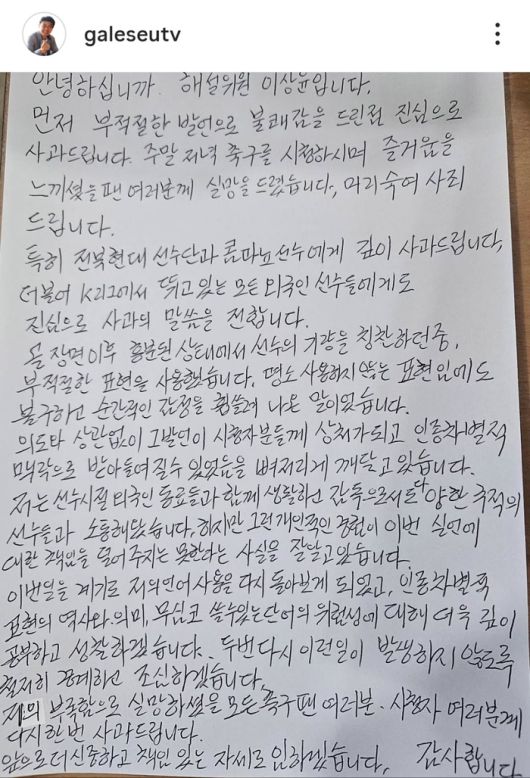 galeseutv
안녕하십니까. 해설위원 이상윤입니다.
먼저 부적절한 발언으로 불쾌감을 드린점 진심으로
사과드립니다. 주말 저녁 축구를 시청하시며 즐거움을
느끼셨을 팬 여러분께 실망을 드렸습니다, 머리숙여 사죄
드립니다.
특히 전북현대 선수단과 콤파뇨선수에게 깊이 사과드립니다,
더불어 K리그에서 뛰고 있는 모든 외국인 선수들에게도
진심으로 사과의 말씀을 전합니다.
골 장면이후 흥분된 상태에서 선수의 기량을 칭찬하던중,
부적절한 표현을 사용했습니다. 평소 사용하지 않는 표현임에도
불구하고 순간적인 감정을 휩쓸려 나온 말이었습니다.
의도와 상관없이 그발언이 시청자분들께 상처가되고 인종차별적
맥락으로 받아들여질수 있었음을 뼈저리게 깨닫고 있습니다.
저는 선수시절 외국인 동료들과 함께 생활하고 감독으로서도 다양한 국적의
선수들과 소통해왔습니다, 하지만 그런 개인적인 경험이 이번 실언에
대한 책임을 덜어주지는 못한다는 사실을 잘알고있습니다.
이번일을 계기로 저의언어 사용을 다시 돌아보게 되었고, 인종차별적
표현의 역사와 의미, 무심코 쓸수있는단어의 위험성에 대해 더욱 깊이
공부하고 성찰하겠습니다. 두번다시 이런일이 발생하지 않도록
철저히 경계하고 조심하겠습니다.
저의 부족함으로 실망하셨을 모든 축구 팬 여러분. 시청자 여러분께
다시한번 사과드립니다.
앞으로 더 신중하고 책임 있는 자세로 임하겠습니다, 감사합니다